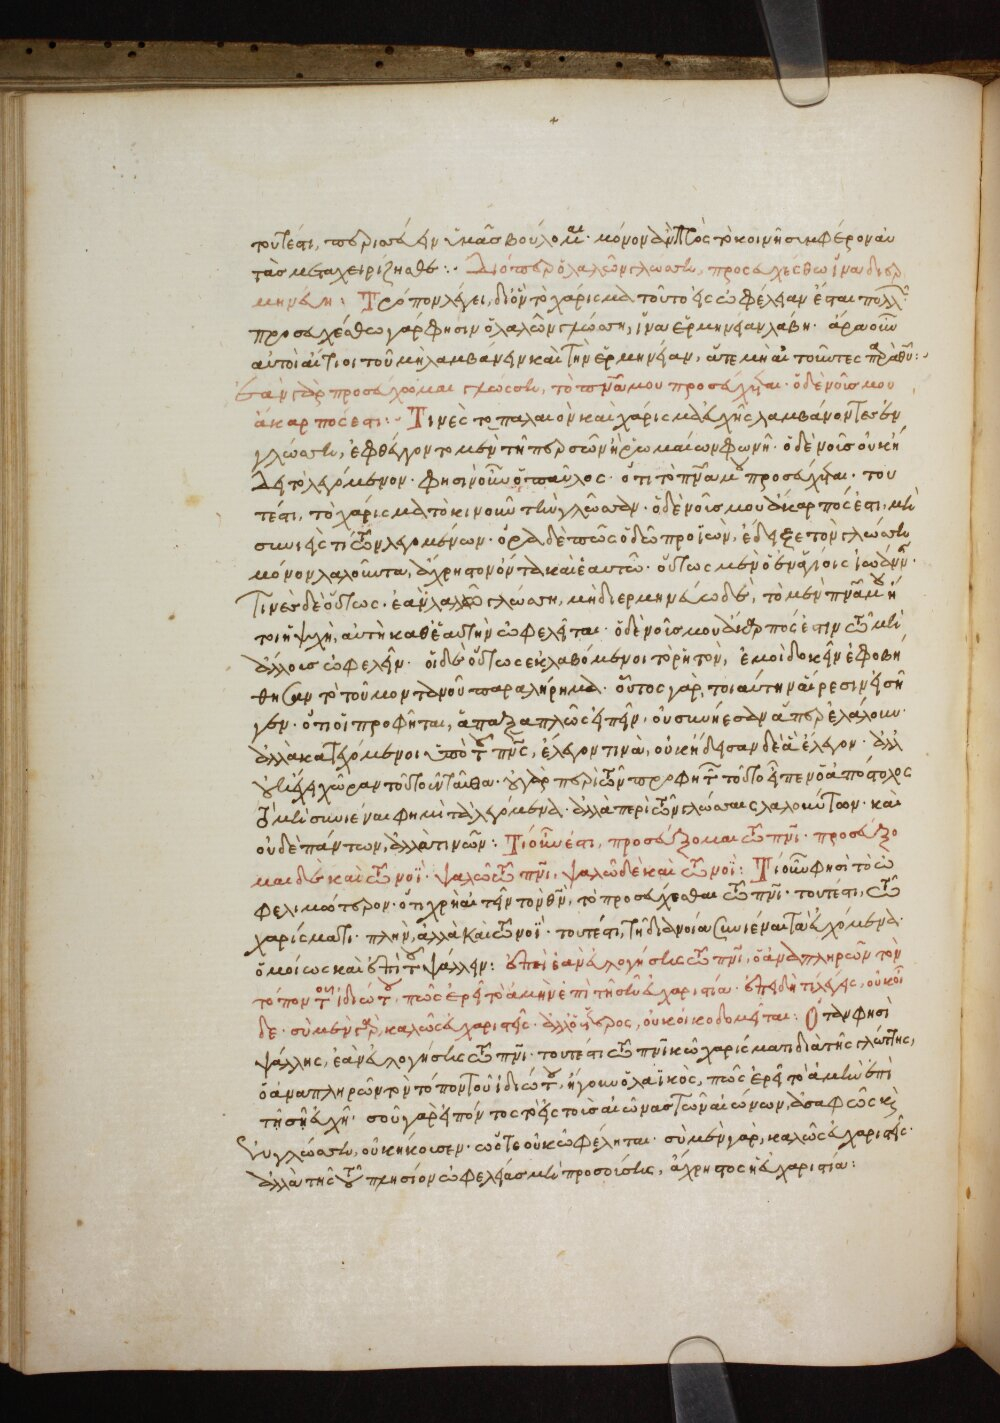 τουτέστι, περισσεύειν ὑμᾶς βούλομαι· μόνον ἂν πρὸς τὸ κοινῇ συμφέρον αὐ
τὰς μεταχειρίζησθε :· Διόπερ ὁ λαλῶν γλώσσῃ, προσευχέσθω ἵνα διερ
μηνεύῃ : Τρόπον λέγει, δι' ὃν τὸ χάρισμα τοῦτο εἰς ὠφέλειαν ἔσται πολλ
προσευχέσθω γάρ φησιν ὁ λαλῶν γλώσσῃ, ἵνα ἑρμηνείαν λάβῃ· ἄρα οὖν
αὐτοὶ αἴτιοι τοῦ μὴ λαμβάνειν καὶ τὴν ἑρμηνείαν, ἅτε μὴ αἰτοῦντες παρὰ θῦ :·
ἐὰν γὰρ προσεύχωμαι γλώσσῃ, τὸ πνᾶ μου προσεύχεται· ὁ δὲ νοῦς μου
ἄκαρπός ἐστι :· Τινὲς τὸ παλαιὸν καὶ χάρισμα εὐχῆς λαμβάνοντες ἐν
γλώσσῃ, ἐφθέγγοντο μὲν τῇ περσῶν ἢ ῥωμαίων φωνῇ· ὁ δὲ νοῦς οὐκ ᾔ
δει τὸ λεγόμενον· φησὶν οὖν ὁ παῦλος· ὅτι τὸ πνᾶ μου προσεύχεται· του
τέστι, τὸ χάρισμα τὸ κινοῦν τὴν γλῶσσαν· ὁ δὲ νοῦς μου ἄκαρπός ἐστι, μὴ
συνιείς τι τῶν λεγομένων· ὅρα δὲ πῶς ὁδῷ προϊὼν, ἔδειξε τὸν γλώσσῃ
μόνον λαλοῦντα, ἄχρηστον ὄντα καὶ ἑαυτῷ· οὕτως μὲν ὁ ἐν ἁγίοις ἰωάννης·
Τινὲς δὲ οὕτως· ἐὰν λαλῶ γλώσσῃ, μὴ διερμηνεύω δὲ, τὸ μὲν πνᾶ μου ἤ
τοι ἡ ψυχὴ, αὐτὴ καθ' ἑαυτὴν ὠφελεῖται· ὁ δὲ νοῦς μου ἄκαρπός ἐστιν τῶ μὴ
ἄλλους ὠφελεῖν· οἱ δὲ οὕτως ἐκλαβόμενοι τὸ ῥητὸν, ἐμοὶ δοκεῖν ἐφοβή
θησαν τὸ τοῦ μοντανοῦ παραλήρημα· οὗτος γὰρ, τοιαύτην αἵρεσιν εἰσῆ
γεν· ὅτι οἱ προφῆται, ἅπαξαπλῶς εἰπεῖν, οὐ συνίεσαν ἅπερ ἐλάλουν·
ἀλλὰ κατεχόμενοι ὑπὸ τοῦ πνς, ἔλεγόν τινα, οὐκ ᾔδεσαν δὲ ἃ ἔλεγον· ἀλλ
οὐκ ἔχει χώραν τοῦτο ἐνταῦθα· οὐ γὰρ περὶ τῶν προφητῶν τοῦτο εἶπεν ὁ ἀπόστολος
τὸ μὴ συνιέναι φημὶ τὰ λεγόμενα· ἀλλὰ περὶ τῶν γλώσσαις λαλούντων· καὶ
οὐδὲ πάντων, ἀλλὰ τινῶν : Τί οὖν ἐστι, προσεύξομαι τῶ πνι· προσεύξο
μαι δὲ καὶ τῶ νοΐ· ψαλῶ τῶ πνι, ψαλῶ δὲ καὶ τῶ νοΐ : Τί οὖν φησὶ τὸ ὠ
φελιμώτερον· ὅτι χρὴ αἰτεῖν τὸν θν, τὸ προσεύχεσθαι τῶ πνι· τουτέστι, τῶ
χαρίσματι· πλὴν, ἀλλὰ καὶ τῶ νοΐ· τουτέστι, τῇ διανοίᾳ συνιέναι τὰ εὐχόμενα·
ὁμοίως καὶ ἐπὶ τοῦ ψάλλειν : ἐπεὶ ἐὰν εὐλογήσῃς τῶ πνι, ὁ ἀναπληρῶν τὸν
τόπον τοῦ ἰδιώτου, πῶς ἐρεῖ τὸ ἀμὴν ἐπὶ τῇ σῇ εὐχαριστίᾳ· ἐπειδὴ τί λέγεις, οὐκ οἶ
δε· σὺ μὲν γὰρ, καλῶς εὐχαριστεῖς· ἀλλ' ὁ ἕτερος, οὐκ οἰκοδομεῖται : Ὅταν φησὶ
ψάλλῃς, ἐὰν εὐλογήσῃς τῶ πνι· τουτέστι τῶ πνικῶ χαρίσματι διὰ τῆς γλώττης,
ὁ ἀναπληρῶν τὸν τόπον τοῦ ἰδιώτου, ἤγουν ὁ λαϊκὸς, πῶς ἐρεῖ τὸ ἀμὴν ἐπὶ
τῇ σῇ εὐχῇ· σοῦ γὰρ εἰπόντος τὸ εἰς τοὺς αἰῶνας τῶν αἰώνων, ἀσαφῶς κὶ
ἐν γλώσσῃ, οὐκ ἤκουσεν· ὥστε οὐκ ὠφέληται· σὺ μὲν γὰρ, καλῶς εὐχαριστεῖς·
ἀλλὰ τῆς τοῦ πλησίον ὠφελείας μὴ προσούσης, ἄχρηστος ἡ εὐχαριστία :